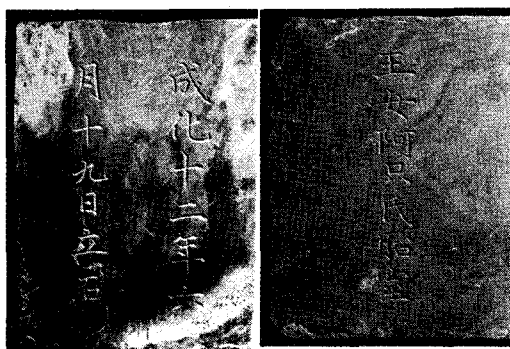 王女阿只氏胎室
成化十二年六
月十九日立石